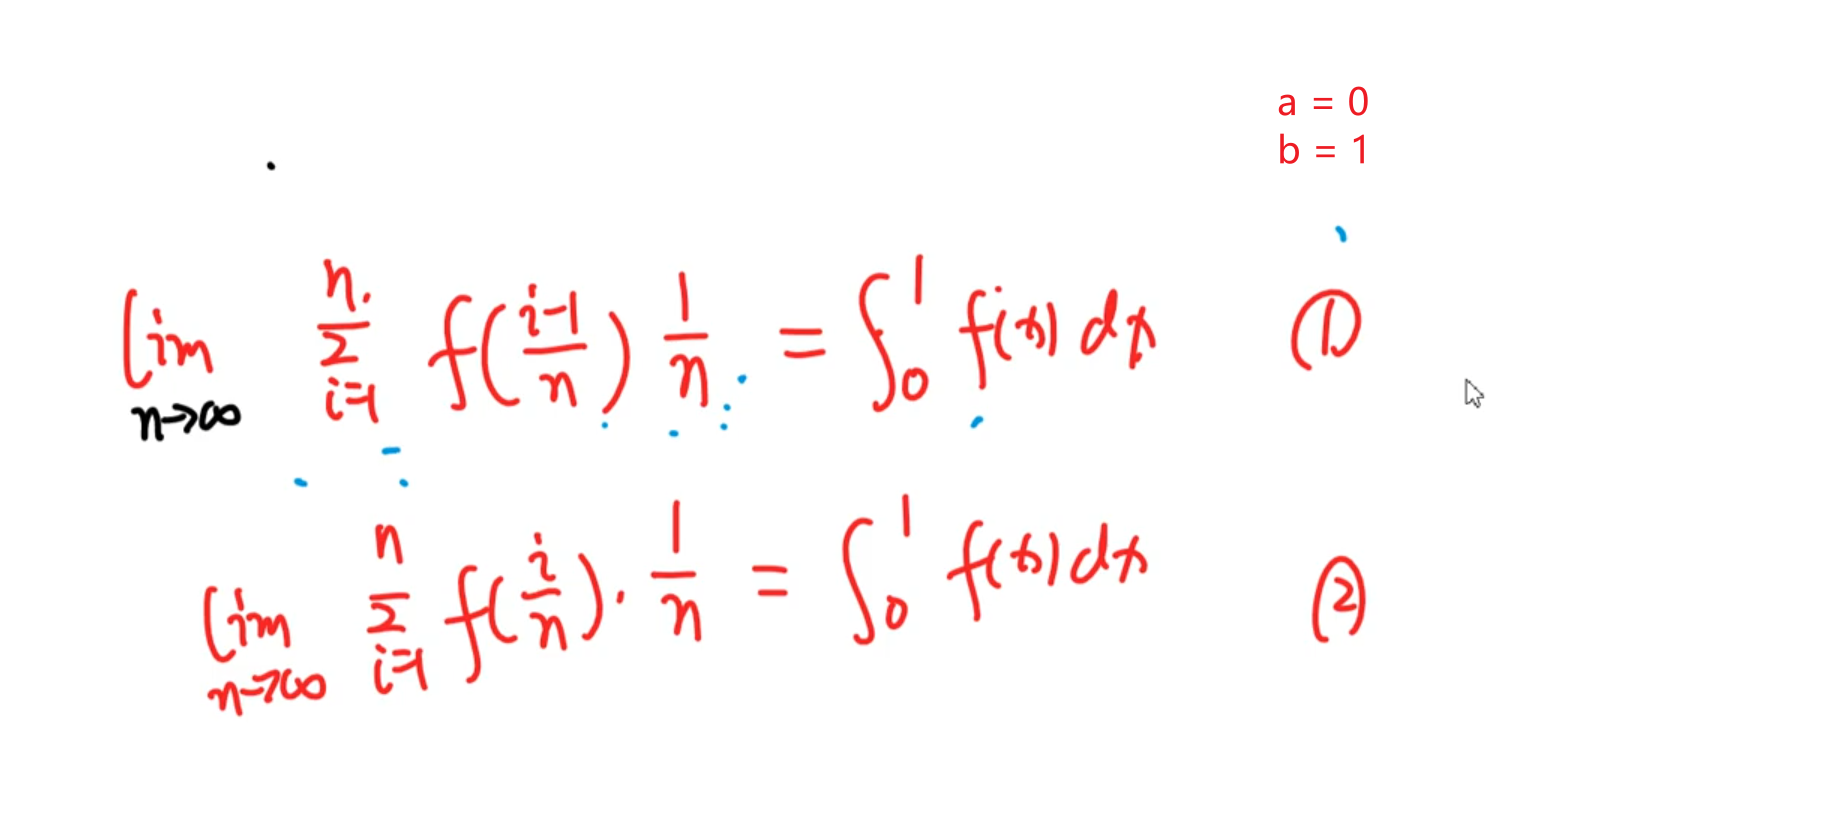 a = 0
b = 1
lim n→∞ n Σ i=1 f(i-1/n) 1/n = ∫₀¹ f(x) dx ①
lim n→∞ n Σ i=1 f(i/n) · 1/n = ∫₀¹ f(x) dx ②